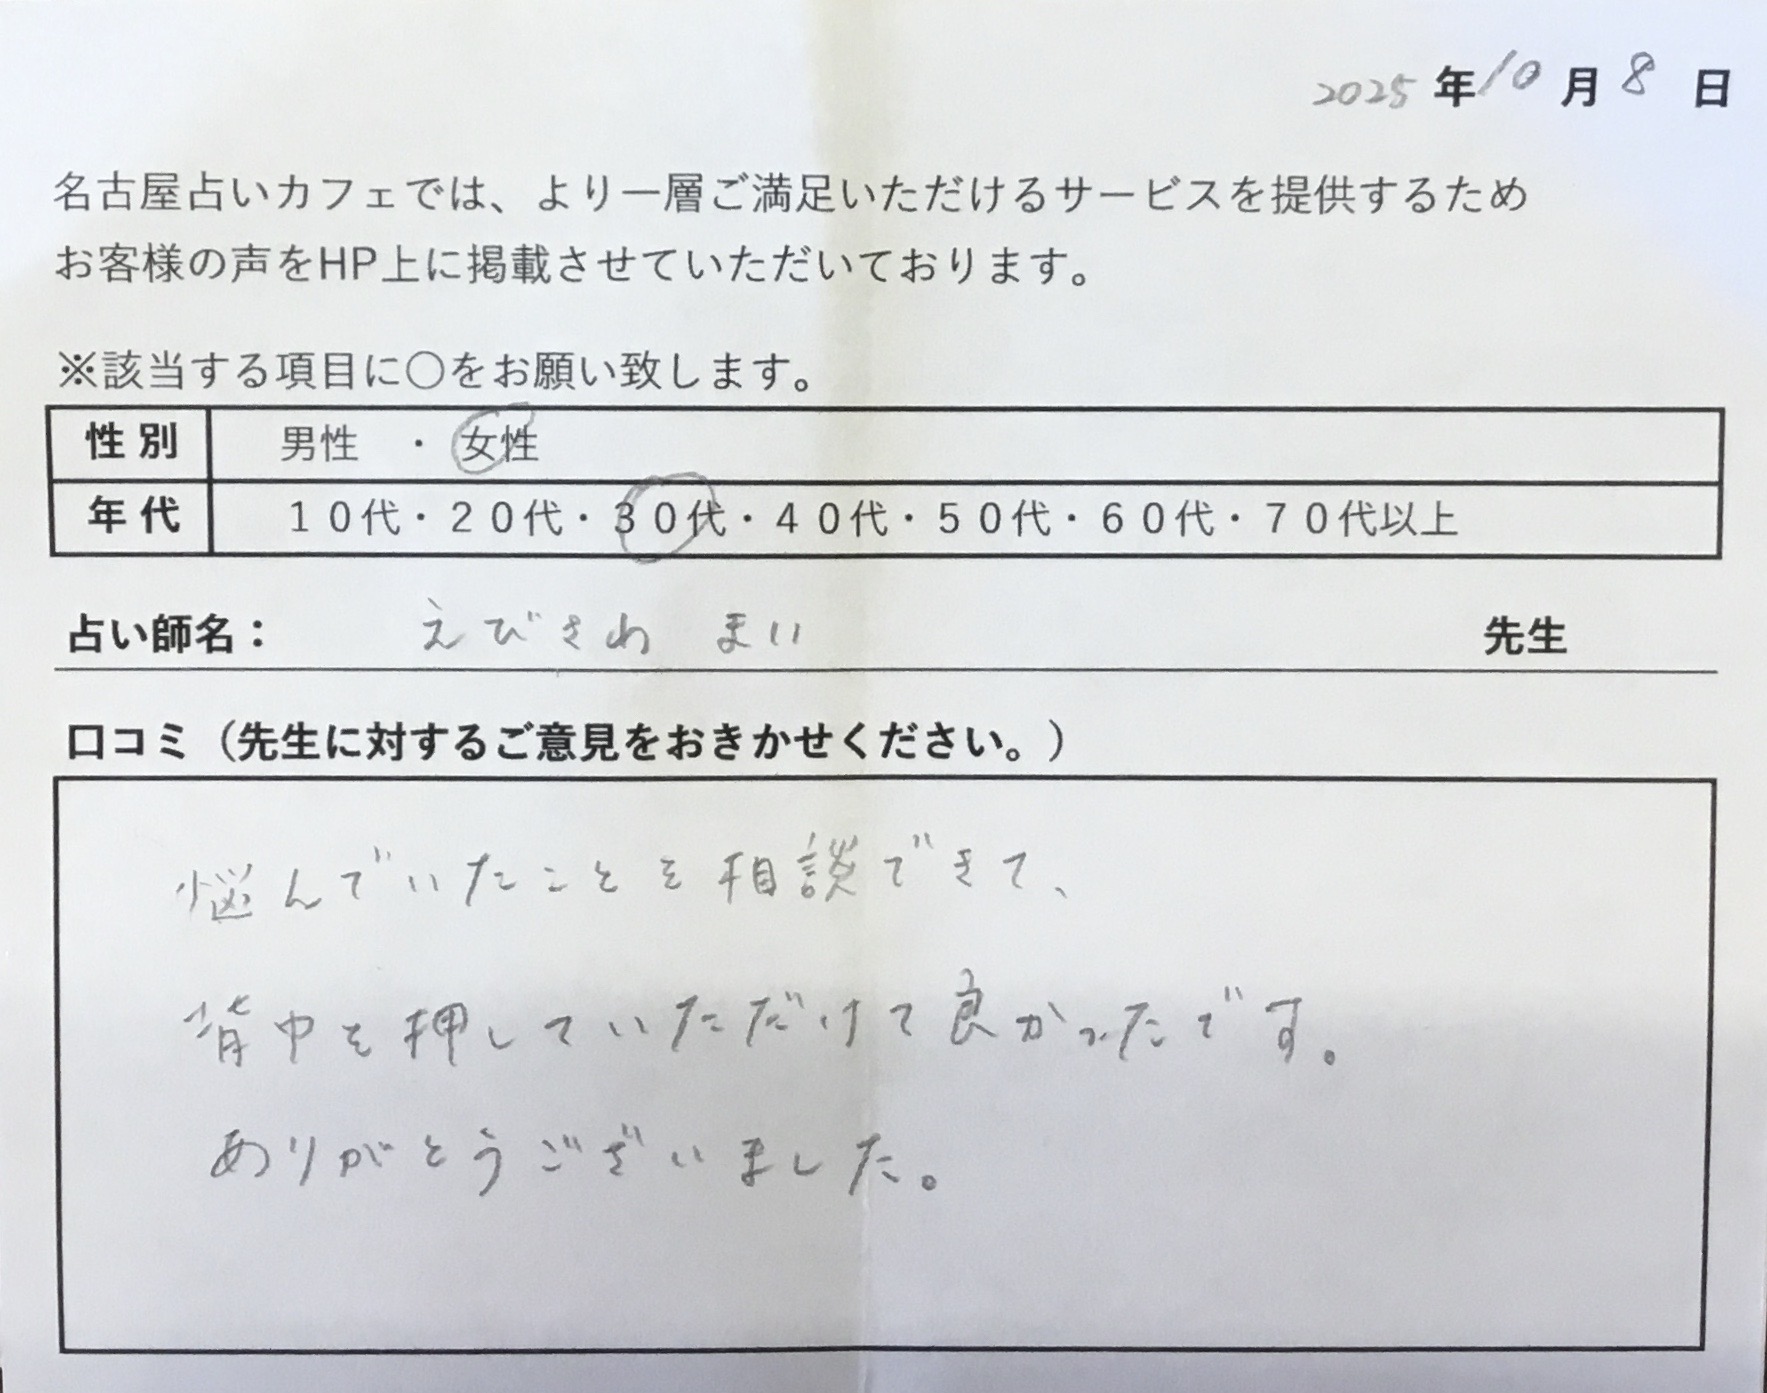 2025年10月8日
名古屋占いカフェでは、より一層ご満足いただけるサービスを提供するため
お客様の声をHP上に掲載させていただいております。
※該当する項目に〇をお願い致します。
性別 男性 ・ 女性
年代 10代・20代・30代・40代・50代・60代・70代以上
占い師名： えびさわ まい 先生
口コミ（先生に対するご意見をおきかせください。）
悩んでいたことを相談できて、
背中を押していただけて良かったです。
ありがとうございました。